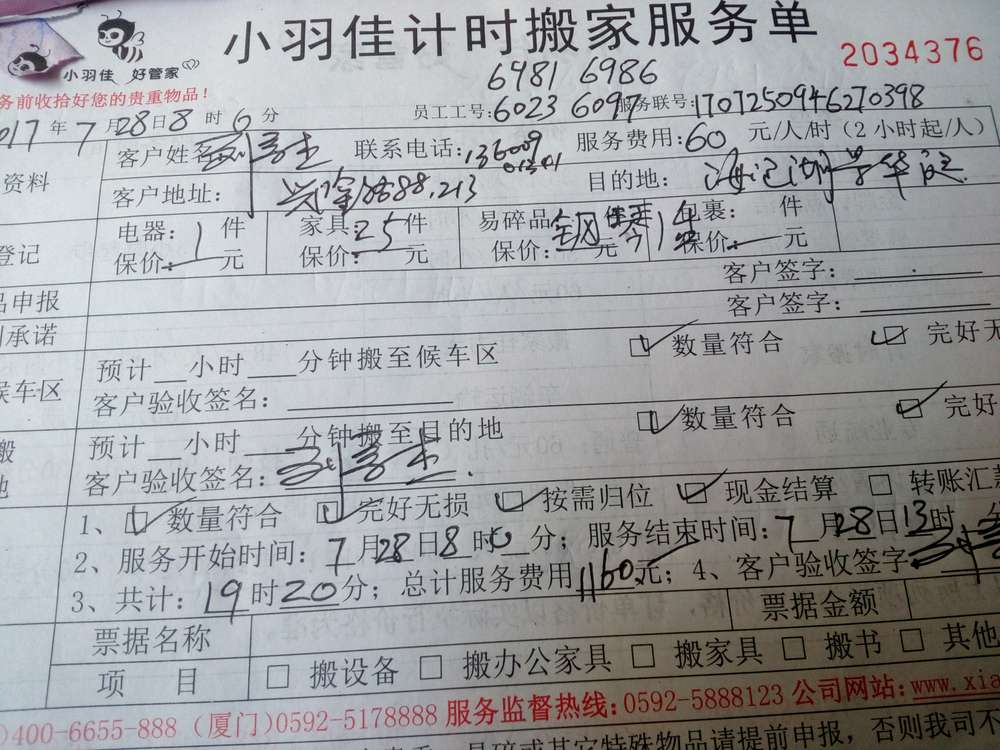 小羽佳计时搬家服务单
小羽佳 好管家
2034376
务前收拾好您的贵重物品！
6481 6986
员工工号：6023 6097 服务联号：1707250946270398
017年7月28日8时6分
客户姓名： 联系电话： 服务费用：60元/人/时（2小时起/人）
资料
客户地址： 213 目的地：
登记
电器：1件 家具：25件 易碎品 钢琴1件 包裹： 件
保价：一元 保价：一元 保价： 元 保价：一元
品申报 客户签字：
承诺 客户签字：
预计__小时___分钟搬至候车区 ☑数量符合 ☑完好无
候车区
客户验收签名：
预计__小时___分钟搬至目的地 ☑数量符合 ☑完好
搬
地
客户验收签名：
1、☑数量符合 ☑完好无损 ☑按需归位 ☑现金结算 □转账汇
2、服务开始时间：7月28日8时0分；服务结束时间：7月28日13时
3、共计：19时20分；总计服务费用1160元；4、客户验收签字
票据名称 票据金额
项 目 □搬设备 □搬办公家具 □搬家具 □搬书 □其他
400-6655-888（厦门）0592-5178888 服务监督热线：0592-5888123 公司网站：www.xia
易碎或其它特殊物品请提前申报，否则我司不